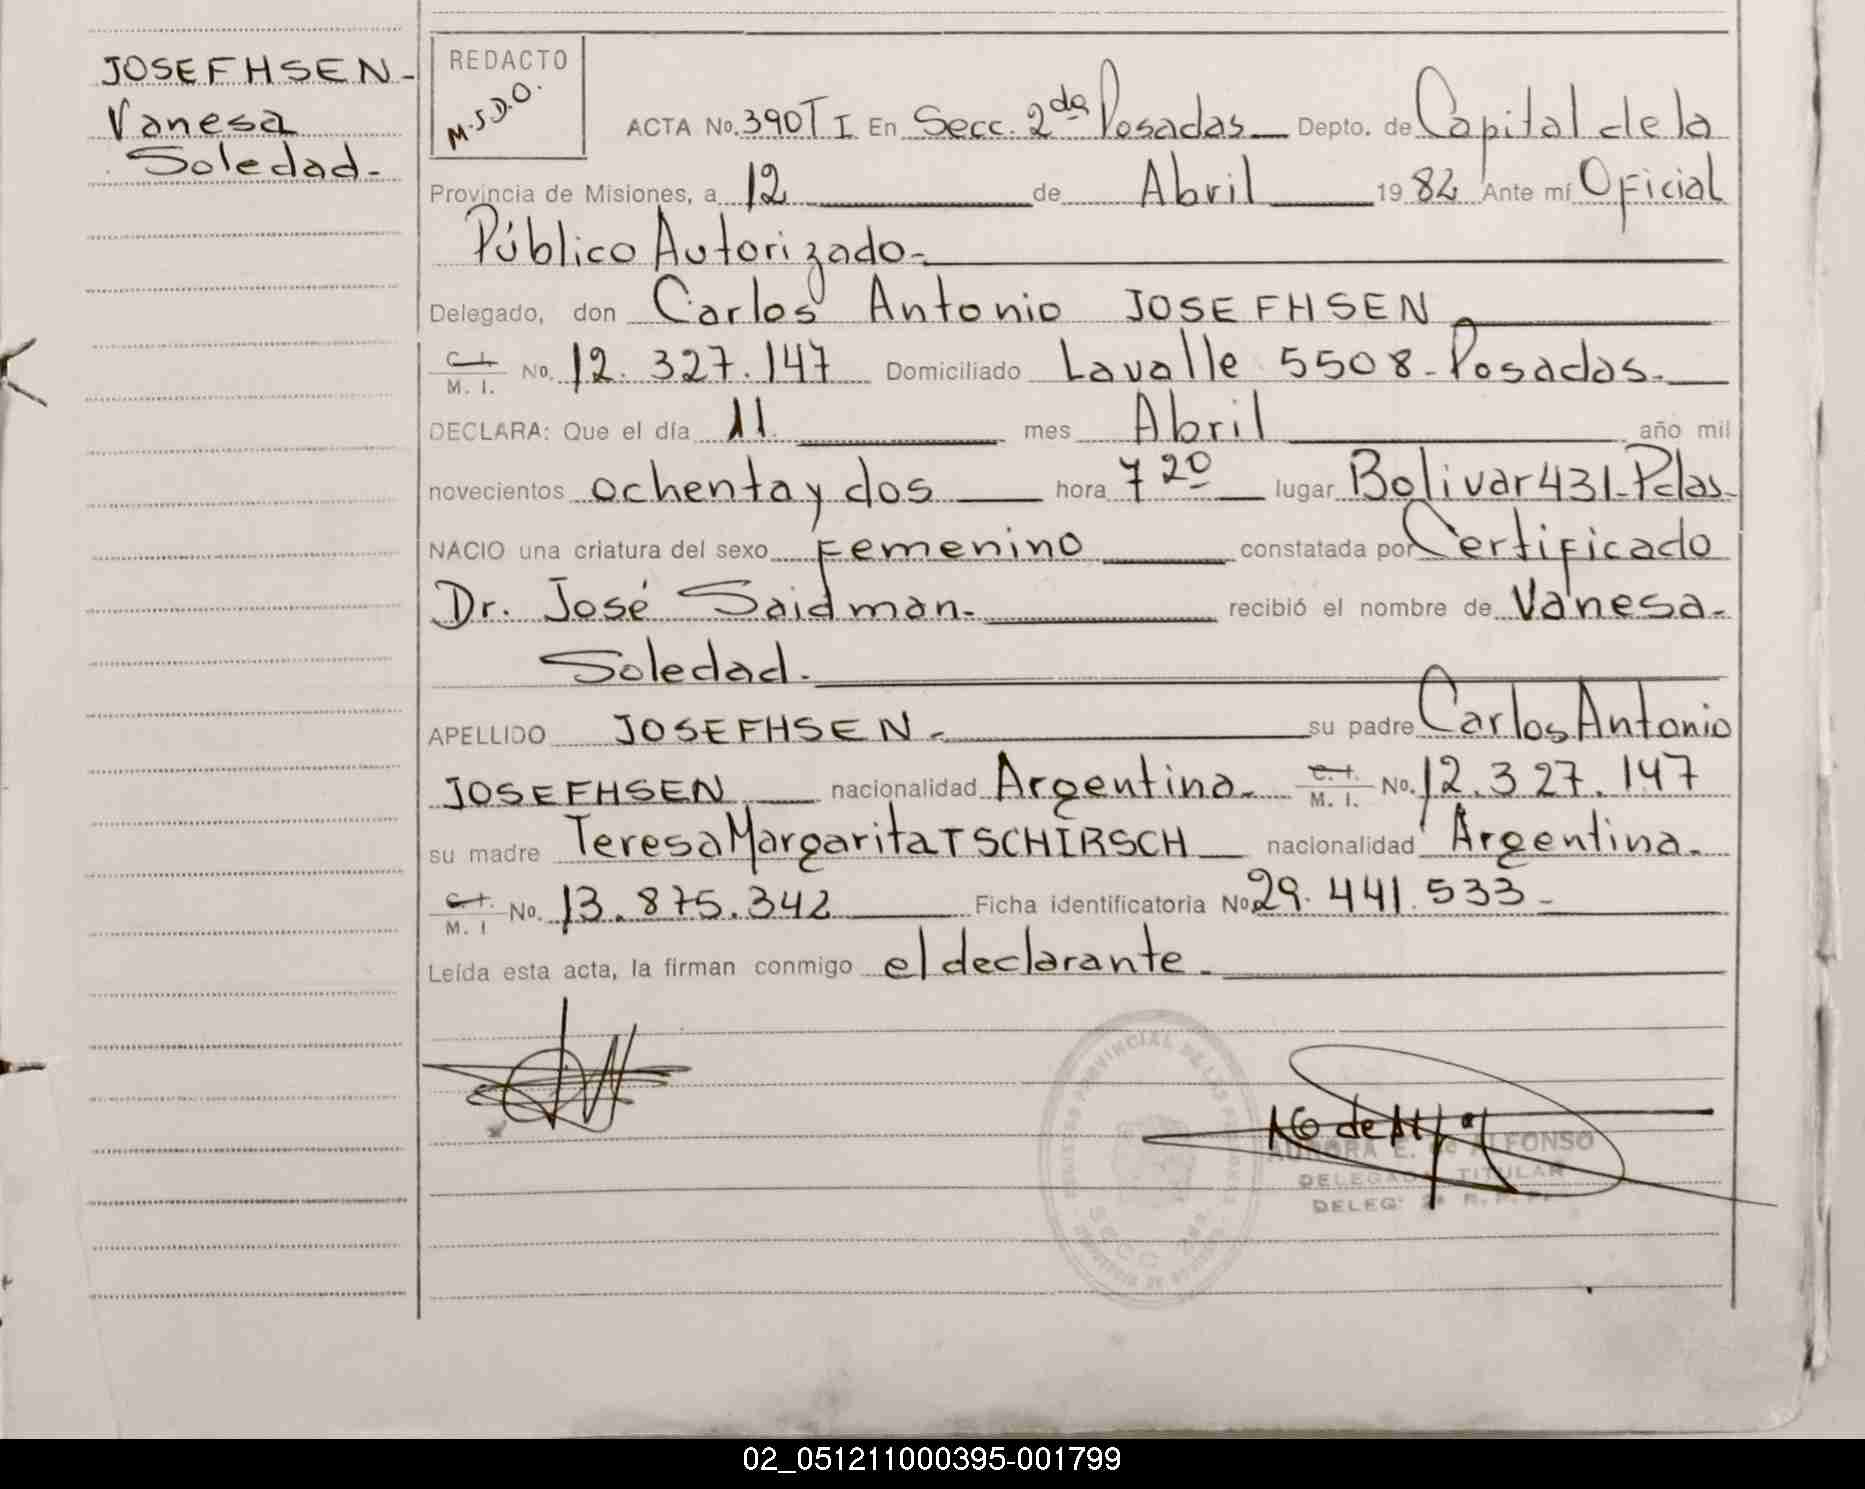 JOSEFHSEN-
Vanesa
Soledad-
REDACTO
M.S.D.O.
ACTA No. 390 T I En Secc. 2da Posadas Depto. de Capital de la
Provincia de Misiones, a 12 de Abril 1982 Ante mí Oficial
Público Autorizado-
Delegado, don Carlos Antonio JOSEFHSEN
C.I. M. I. No. 12.327.147 Domiciliado Lavalle 5508-Posadas-
DECLARA: Que el día 11 mes Abril año mil
novecientos ochenta y dos hora 7 20 lugar Bolivar 431-Pdas-
NACIO una criatura del sexo Femenino constatada por Certificado
Dr. José Saidman- recibió el nombre de Vanesa-
Soledad.
APELLIDO JOSEFHSEN- su padre Carlos Antonio
JOSEFHSEN nacionalidad Argentina- C.I. M. I. No. 12.327.147
su madre Teresa Margarita TSCHIRSCH nacionalidad Argentina-
C.I. M. I No. 13.875.342 Ficha identificatoria No 29.441.533-
Leída esta acta, la firman conmigo el declarante-
PROVINCIAL DE LAS
SECC. 2da.
AURORA E. de ALFONSO
DELEGADA TITULAR
DELEG. 2ª R. P. P.
02_051211000395-001799